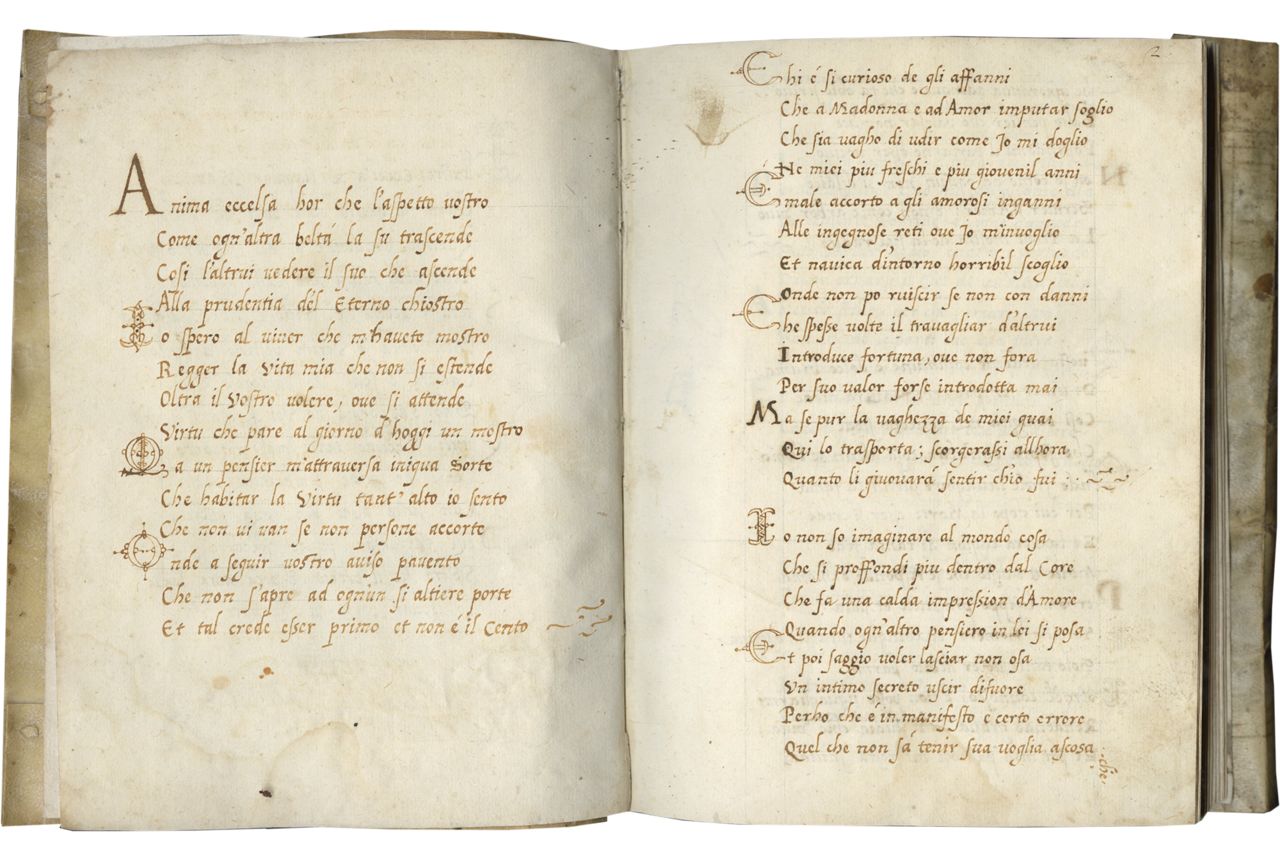 Anima eccelsa hor che l'aspetto vostro
Come ogn'altra beltá la su trascende
Cosi l'altrui vedere il suo che ascende
Alla prudentia del Eterno chiostro
Io spero al viver che m'havete mostro
Regger la Vita mia che non si estende
Oltra il Vostro volere, oue si attende
Virtu che pare al giorno d'hoggi un mostro
Qa un pensier m'attraversa iniqua Sorte
Che habitar la Virtu tant' alto io sento
Che non vi van se non persone accorte
Onde a seguir vostro auiso pavento
Che non s'apre ad ognun si altiere porte
Et tal crede esser primo et non é il Cento
2
Chi é si curioso de gli affanni
Che a Madonna e ad Amor imputar soglio
Che sia vagho di udir come Jo mi doglio
Ne miei piu freschi e piu giovenil anni
E male accorto a gli amorosi inganni
Alle ingegnose reti oue Jo m'inuoglio
Et nauica d'intorno horribil scoglio
Onde non po ruiscir se non con danni
Che spesse volte il travagliar d'altrui
Introduce fortuna, oue non fora
Per suo valor forse introdotta mai
Ma se pur la vaghezza de miei guai
Qui lo trasporta; scorgerassi allhora
Quanto li giuouará sentir ch'io fui
Io non so imaginare al mondo cosa
Che si proffondi piu dentro dal Core
Che fa una calda impression d'Amore
Quando ogn'altro pensiero in lei si posa
Et poi saggio voler lasciar non osa
Un intimo secreto uscir difuore
Perho che é in manifesto e certo errore
Quel che non sá tenir sua voglia ascosa
che